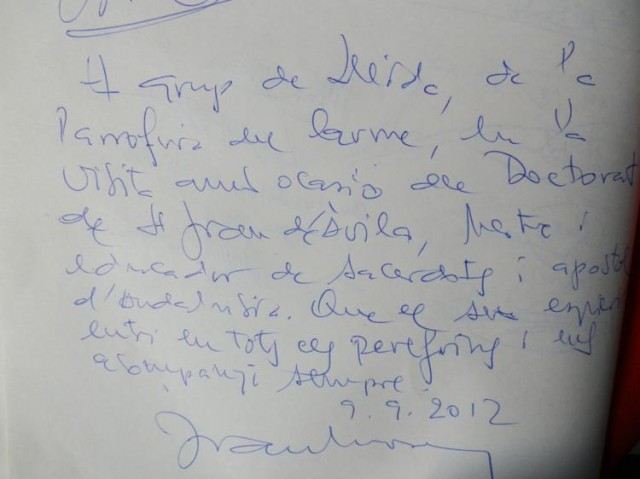 grup de Lleida, de la
Parroquia del Carme, en la
visita amb ocasió del Doctorat
de St Joan d'Àvila, Mestre i
educador de sacerdots i apostol
d'Andalusia. Que el seu esperi
entri en tots els peregrins i ens
acompanyi sempre
9.9.2012